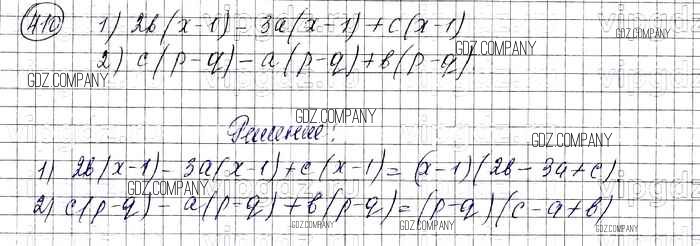 410 1) 2b(x-1) - 3a(x-1) + c(x-1)
GDZ.COMPANY
GDZ.COMPANY
2) c(p-q) - a(p-q) + b(p-q)
GDZ.COMPANY
GDZ.COMPANY
Решение:
GDZ.COMPANY
1) 2b(x-1) - 3a(x-1) + c(x-1) = (x-1)(2b-3a+c).
GDZ.COMPANY
2) c(p-q) - a(p-q) + b(p-q) = (p-q)(c-a+b)
GDZ.COMPANY
GDZ.COMPANY